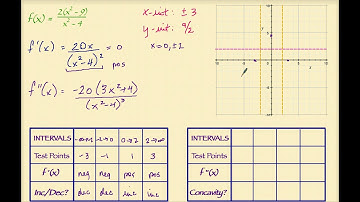 f(x) = 2(x² - 9) / x² - 4
x-int: ± 3
y-int: 9/2
f'(x) = 20x / (x² - 4)² = 0
x = 0, ± 2
pos
f''(x) = -20(3x² + 4) / (x² - 4)³
INTERVALS -∞→-2 -2→0 0→2 2→∞
Test Points -3 -1 1 3
f'(x) neg neg pos pos
Inc/Dec? dec dec inc inc
INTERVALS
Test Points
f"(x)
Concavity?